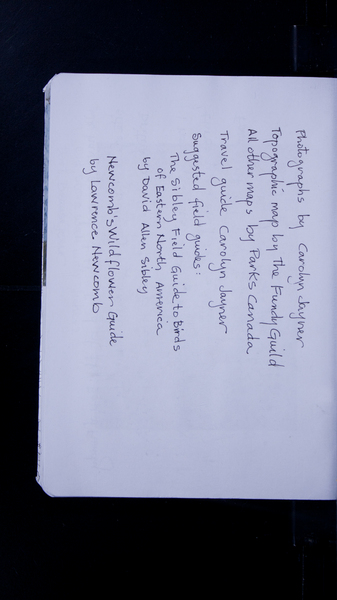 Photographs by Carolyn Jayner
Topographic map by The Fundy Guild
All other maps by Parks Canada
Travel guide Carolyn Jayner
Suggested field guides:
The Sibley Field Guide to Birds
of Eastern North America
by David Allen Sibley
Newcomb's Wildflower Guide
by Lawrence Newcomb